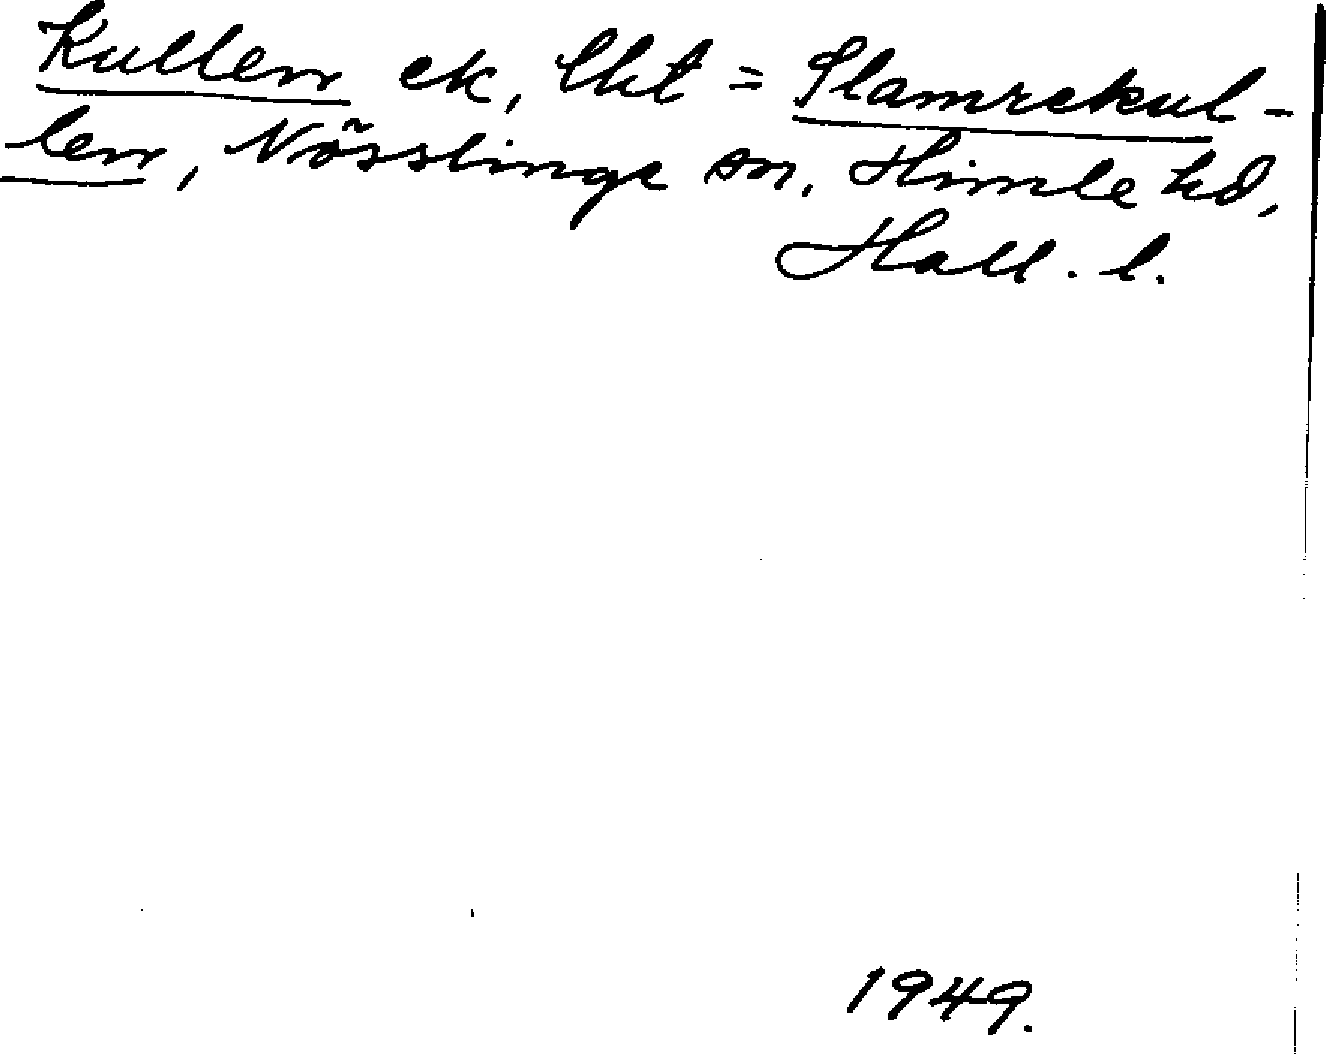 Kullen ek, lht = Slamrekul-
len, Nösslinge sn, Himle hd,
Hall. l.
1949.